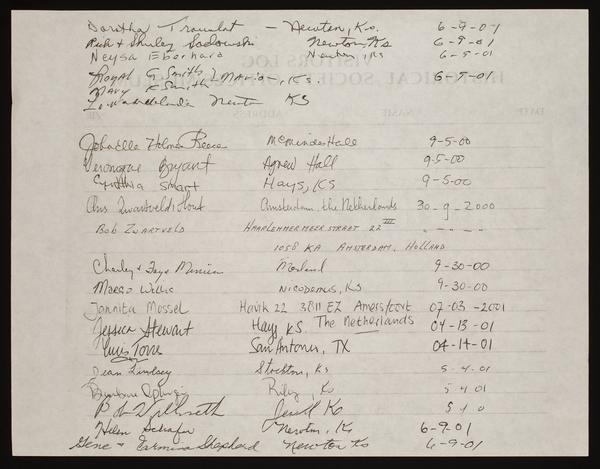 Doretha Tramlat - Newton, Ks. 6-9-01
Rich & Shirley Sadowski Newton, Ks 6-9-01
Neysa Eberhard Newton, Ks 6-9-01
Royal G Smith Marion, Ks. 6-9-01
Mary E Smith
Newton KS
Johnelle Holmes Reece McMindes Hall 9-5-00
Veronique Bryant Agnew Hall 9-5-00
Cynthia Smart Hays, KS 9-5-00
Amsterdam, the Netherlands 30-9-2000
Bob Zwartveld Haarlemmermeerstraat 22 III
1058 KA Amsterdam, Holland
Charley & Faye Minium Morland 9-30-00
Margo Willis Nicodemus, Ks 9-30-00
Jannita Mossel Havik 22 3811 EZ Amersfoort 07-03-2001
The Netherlands
Jessica Stewart Hays KS 04-13-01
Luis Torres San Antonio, TX 04-14-01
Dean Lindsey Stockton, Ks 5-4-01
Barbara Riley, Ks 5 4 01
Helen Schafer Newton, Ks 6-9-01
Gene & Ermina Shepherd Newton Ks 6-9-01